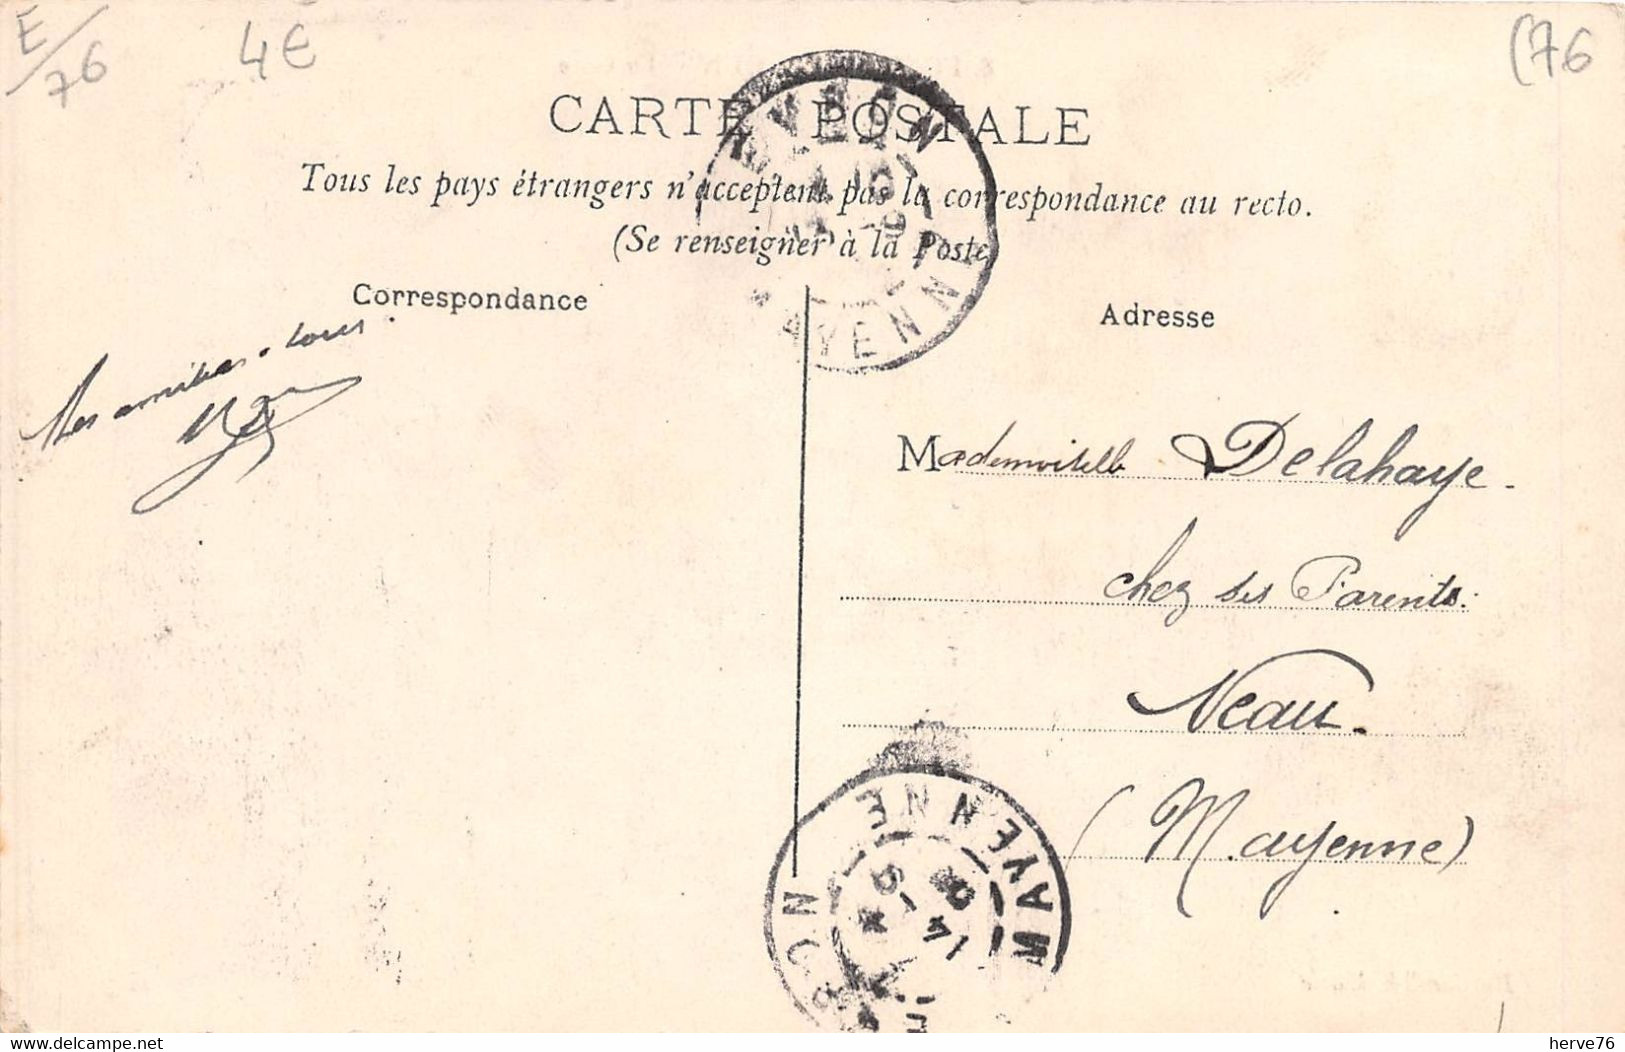 E/76
4€
(76
CARTE POSTALE
Tous les pays étrangers n'acceptent pas la correspondance au recto.
(Se renseigner à la Poste)
Correspondance
Adresse
Mes amitiés à tous.
Mademoiselle Delahaye.
chez ses Parents.
Neau.
(Mayenne)
EVRON
MAYENNE
MAYENNE
delcampe.net
herve76